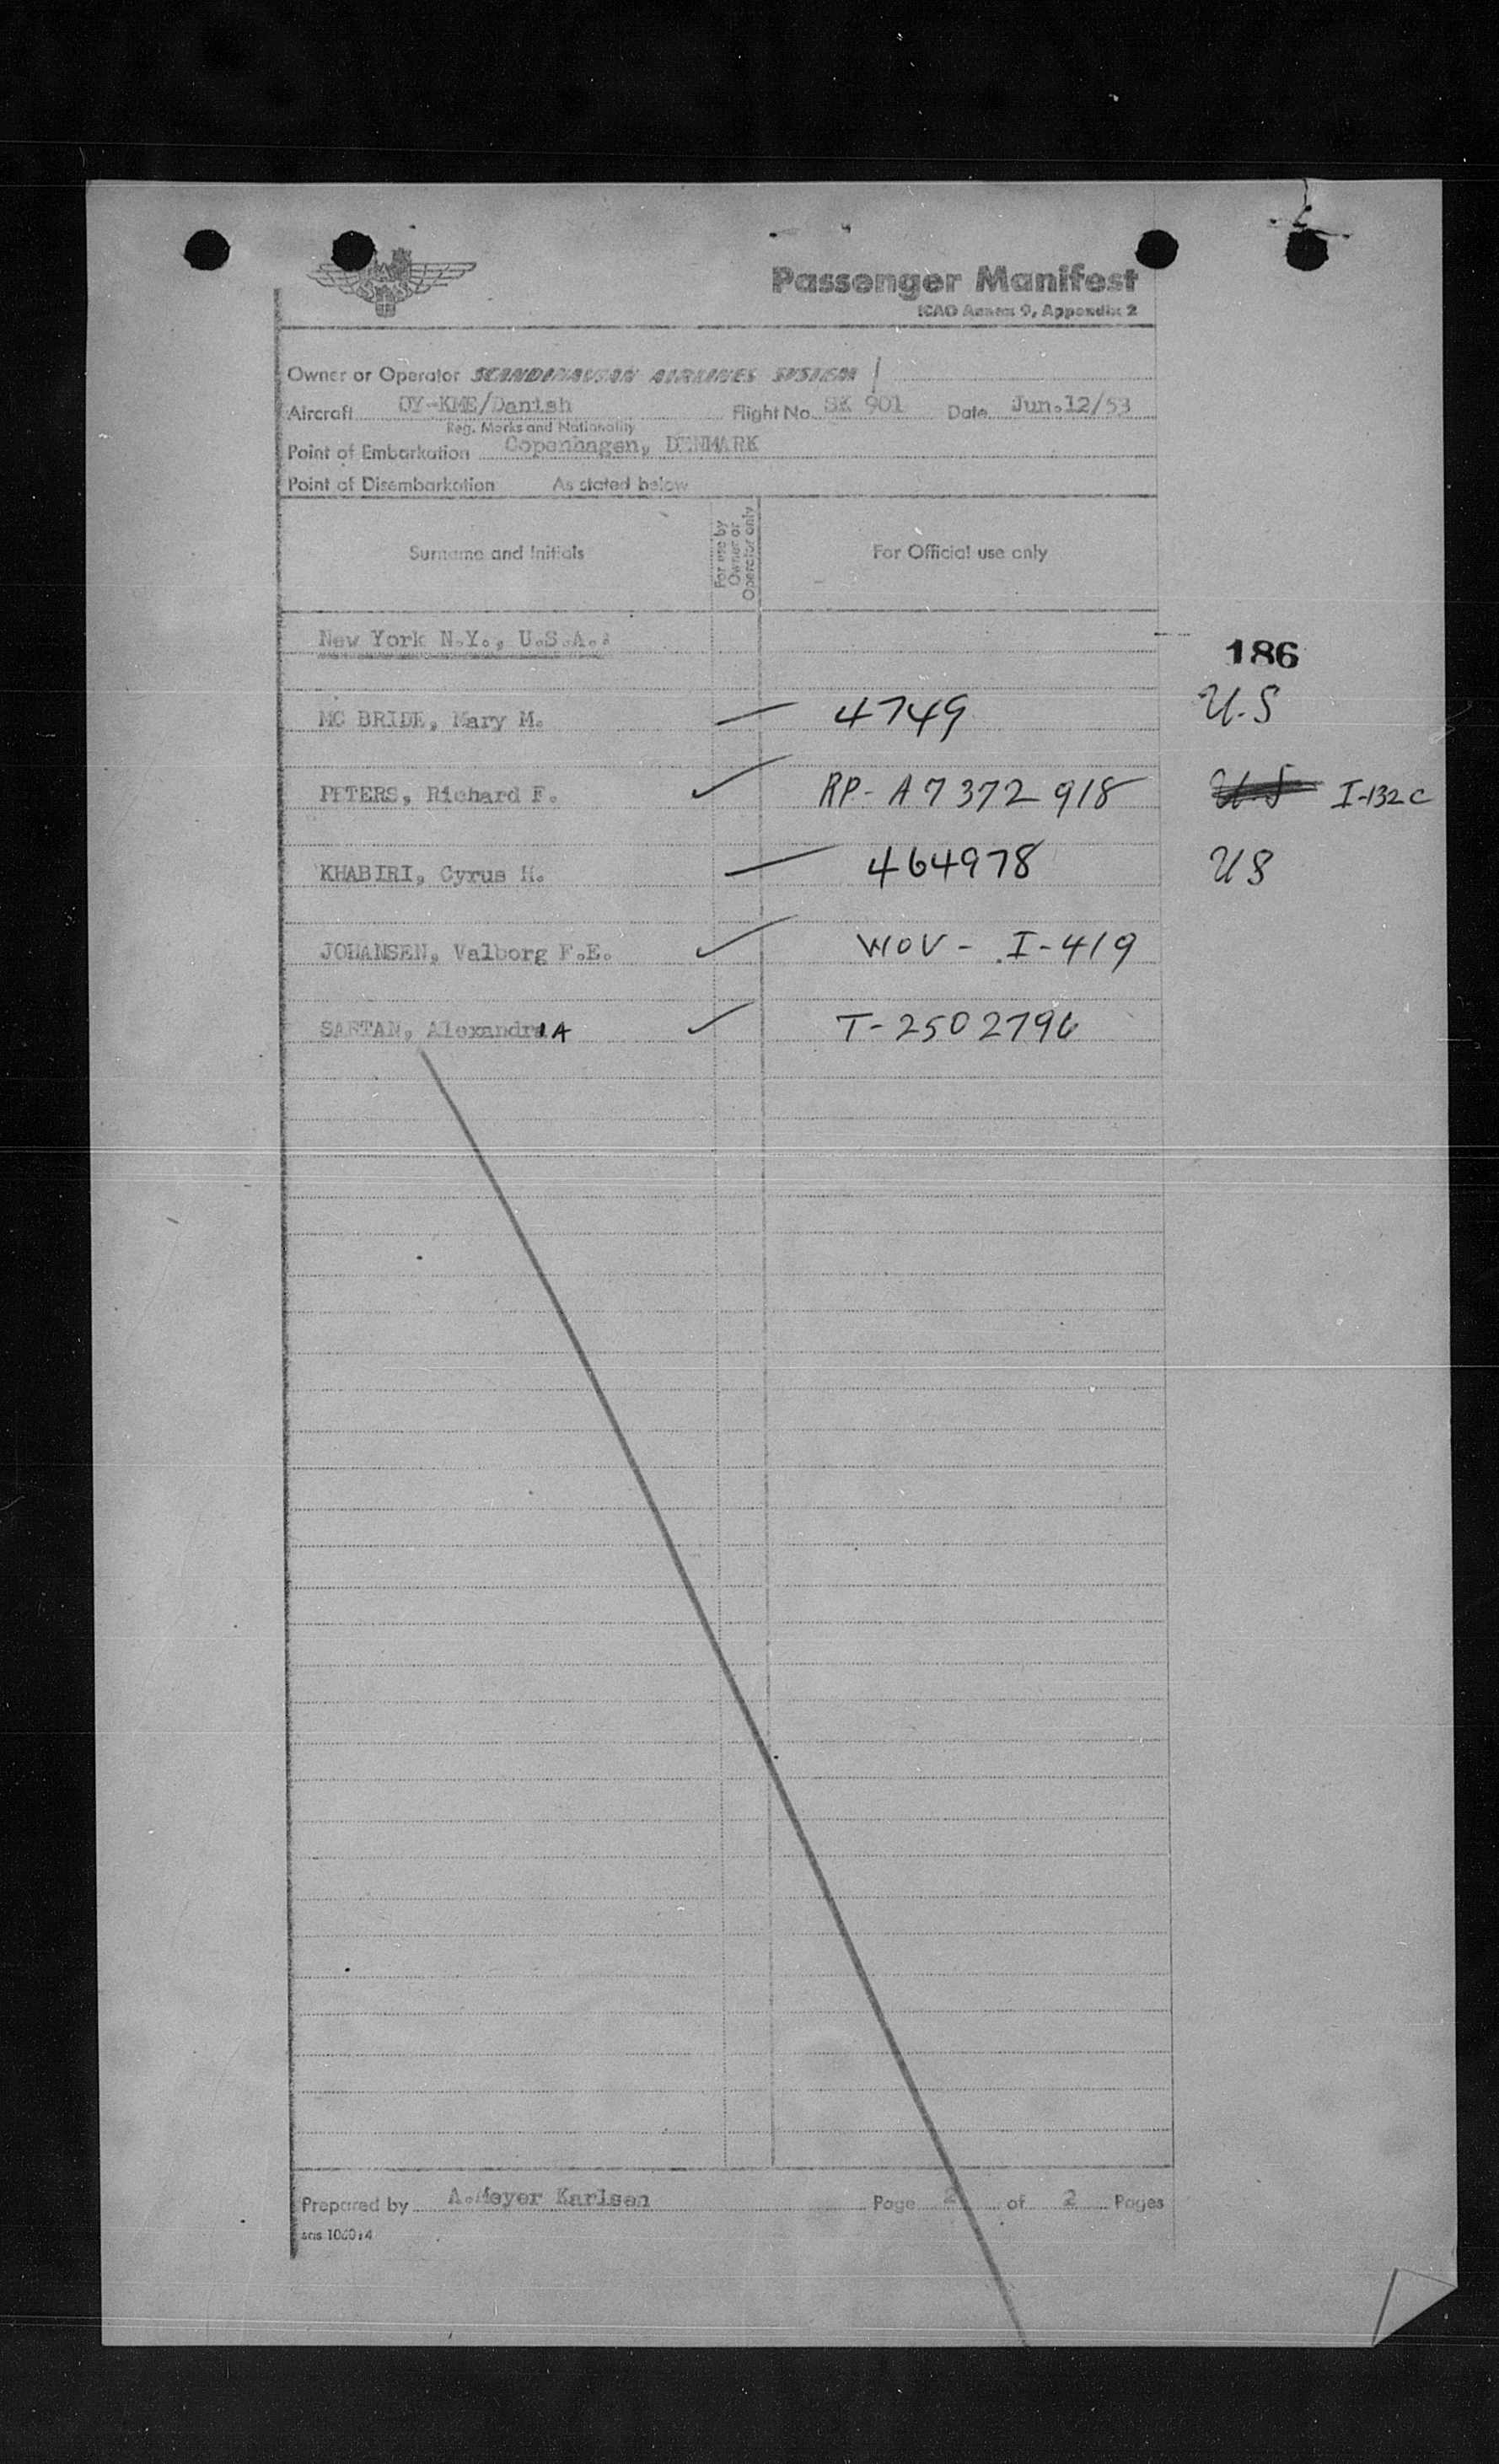 Passenger Manifest
ICAO Annex 9, Appendix 2
Owner or Operator SCANDINAVIAN AIRLINES SYSTEM
Aircraft OY-KME/Danish Flight No. SK 901 Date Jun.12/53
Reg. Marks and Nationality
Point of Embarkation Copenhagen, DENMARK
Point of Disembarkation As stated below
Surname and Initials For use by Owner or Operator only For Official use only
New York N.Y., U.S.A.:
186
MC BRIDE, Mary M. 4749 U.S
PETERS, Richard F. RP- A7372918 U.S I-132C
KHABIRI, Cyrus H. 464978 US
JOHANSEN, Valborg F.E. WOV - I-419
Alexandra A T-2502796
Prepared by A.Meyer Karlsen Page 2 of 2 Pages